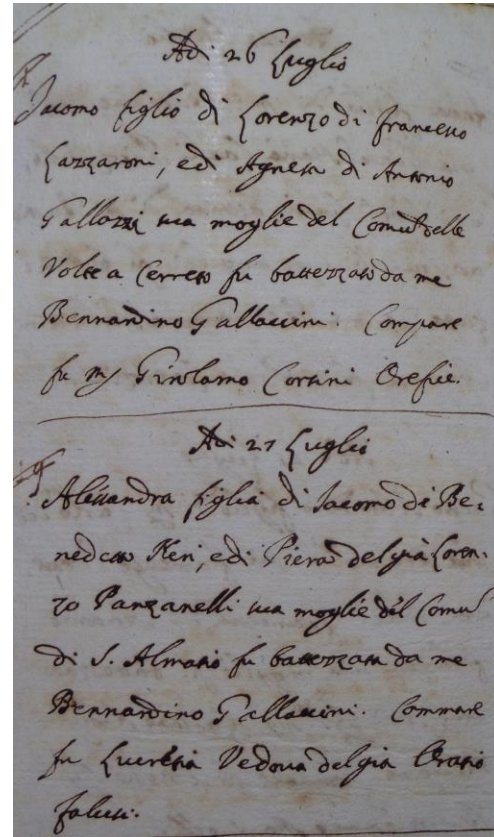 Adi 26 Luglio
Jacomo figlio di Lorenzo di francesco
Lazzaroni, e di Agnesa di Antonio
Gallozzi sua moglie del Comu delle
Volte a Cerreto fu battezzato da me
Bennardino Gallaccini. Compare
fu mj Girolamo Corsini Orefice.
Adi 27 Luglio
Alessandra figlia di Jacomo di Be-
nedetto Neri, e di Piera del già Loren-
zo Panzanelli sua moglie del Comu
di S. Almatio fu battezzata da me
Bennardino Gallaccini. Commare
fu Lucretia Vedova del gia Oratio
falusi.